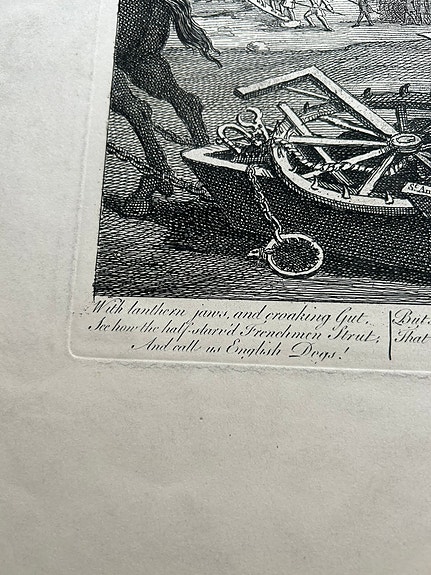 St. An
With lanthorn jaws, and croaking Gut,
See how the half-starv'd Frenchmen Strut,
And call us English Dogs!
But
That